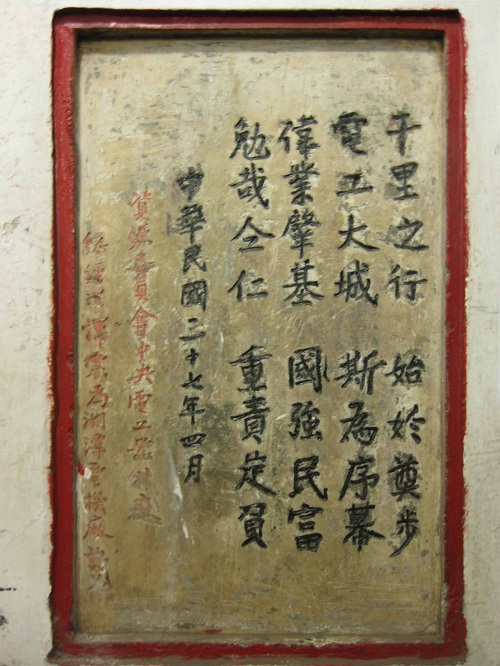 千里之行 始於奠步
電工大城 斯為序幕
偉業肇基 國強民富
勉哉仝仁 重責是負
中華民國三十七年四月
資源委員會中央電工器材廠
湘潭電機廠